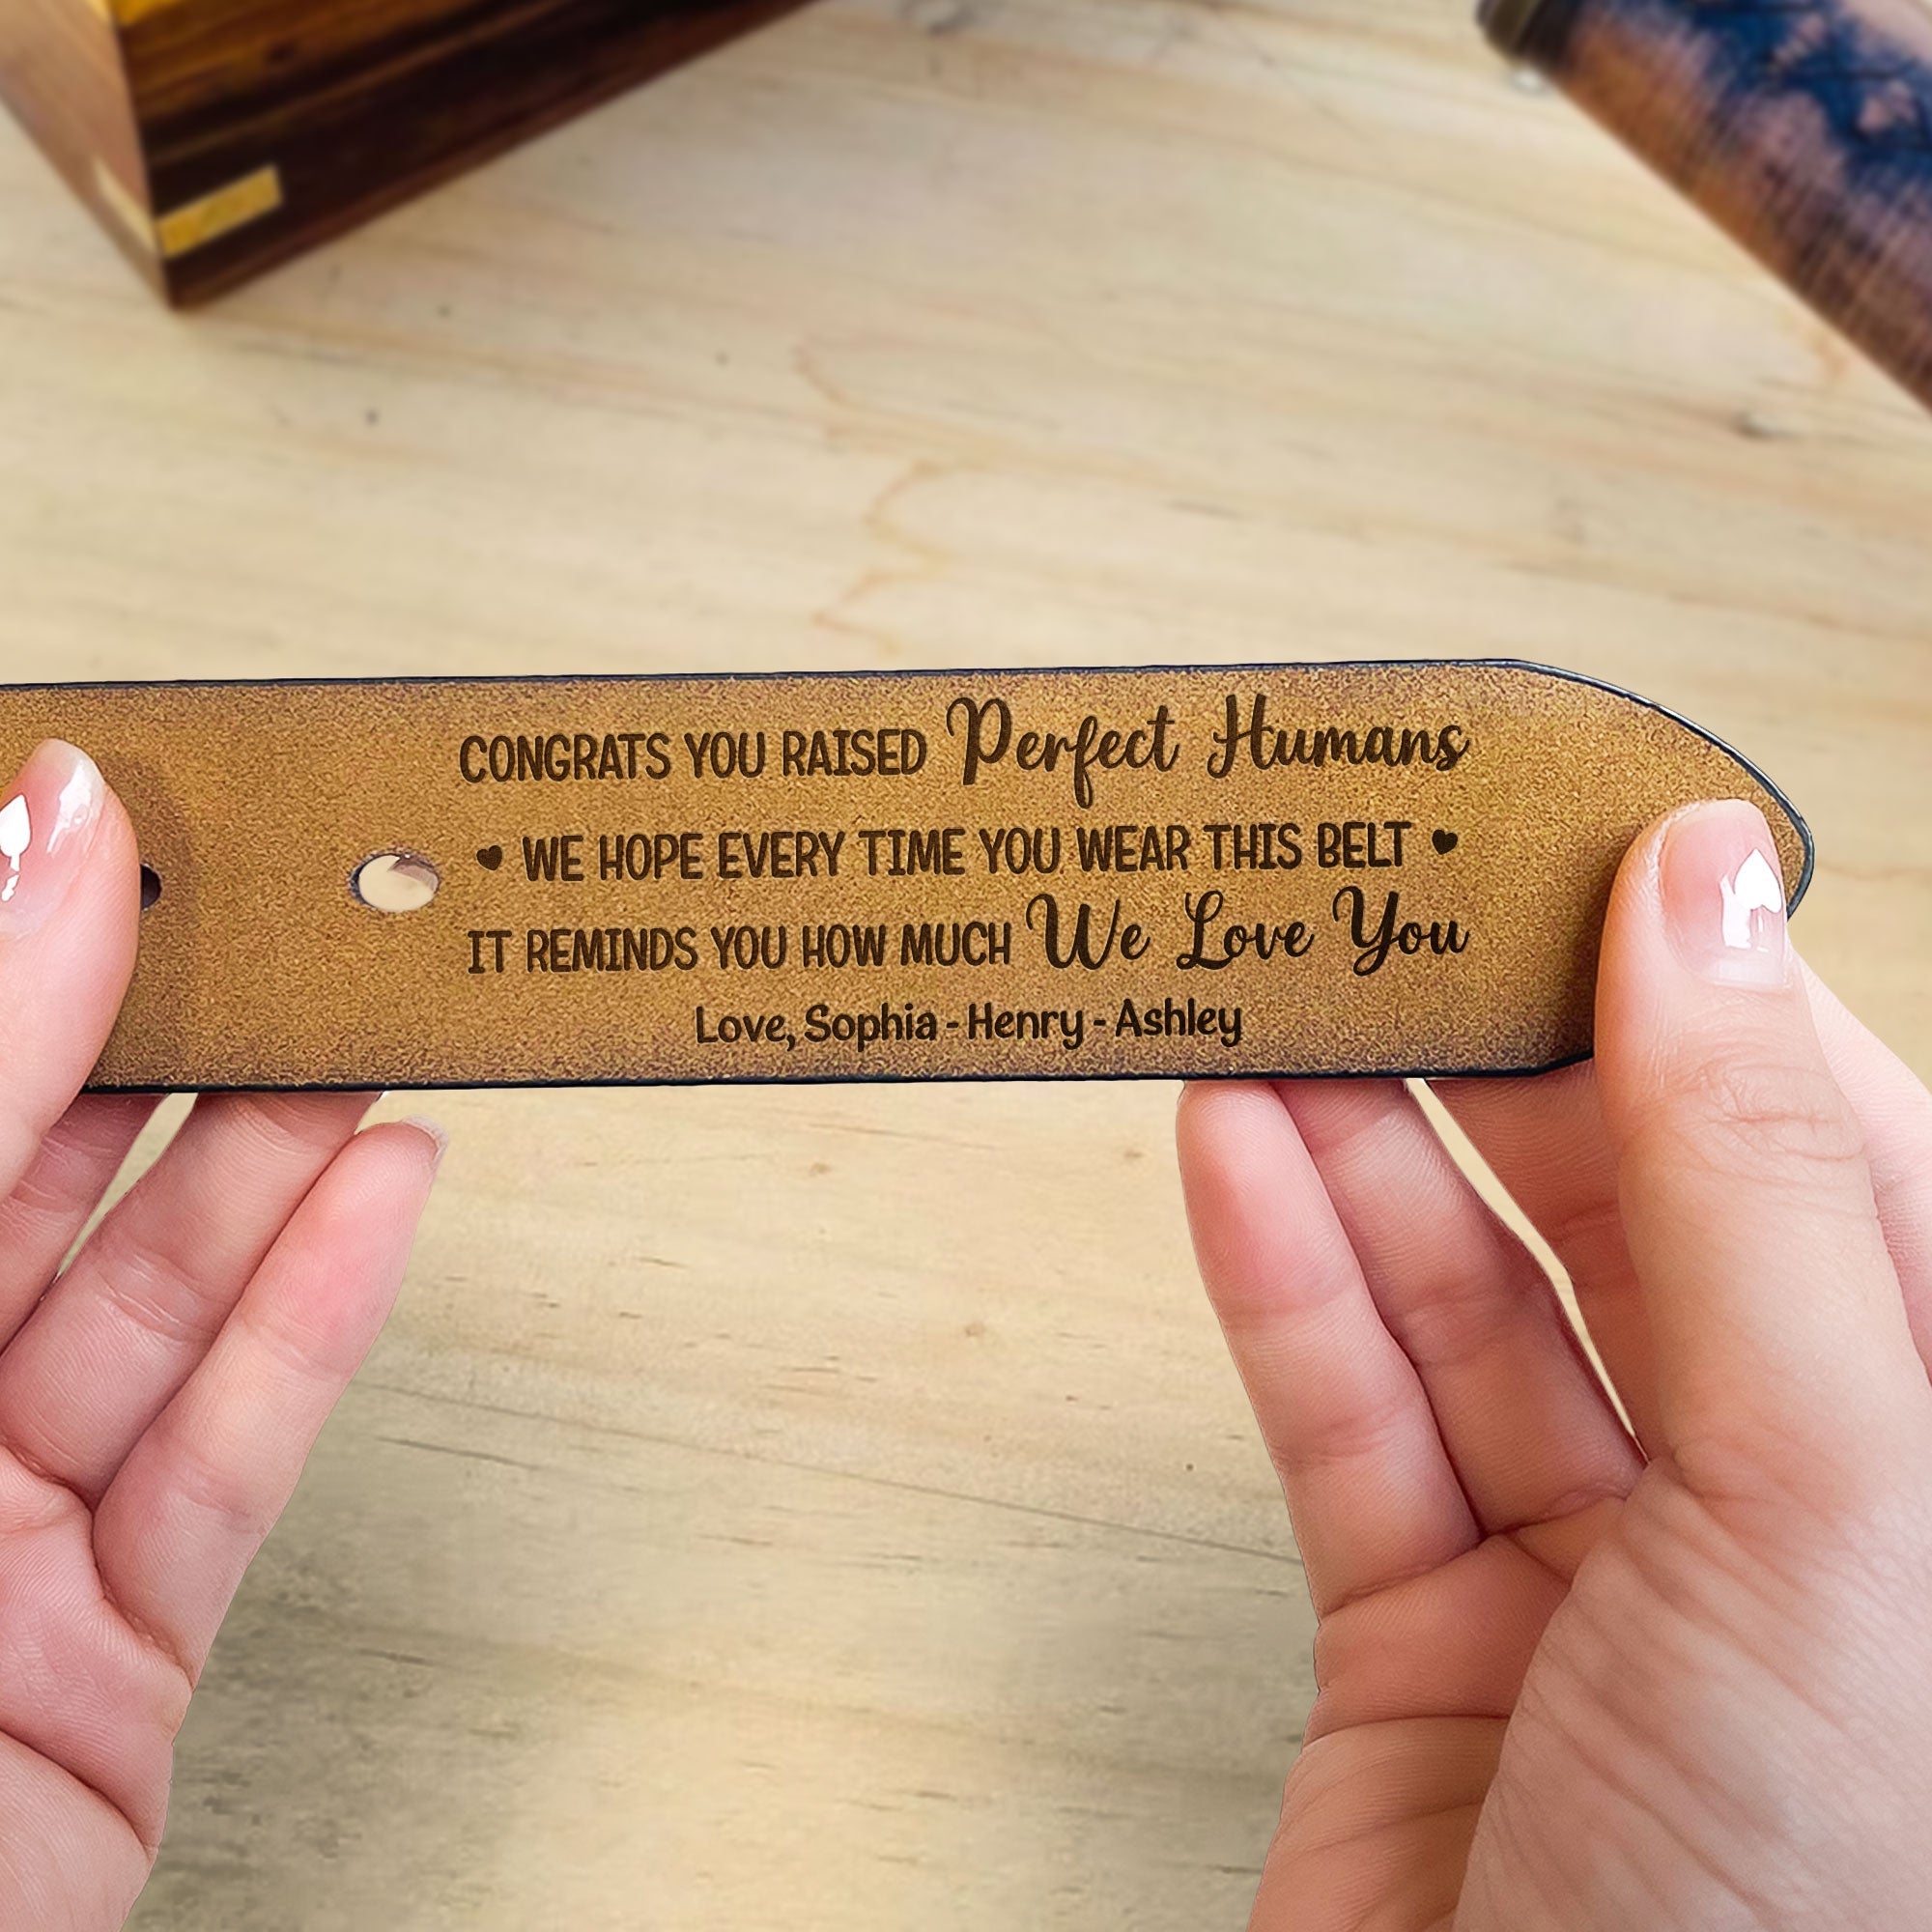 CONGRATS YOU RAISED Perfect Humans
♥ WE HOPE EVERY TIME YOU WEAR THIS BELT ♥
IT REMINDS YOU HOW MUCH We Love You
Love, Sophia - Henry - Ashley